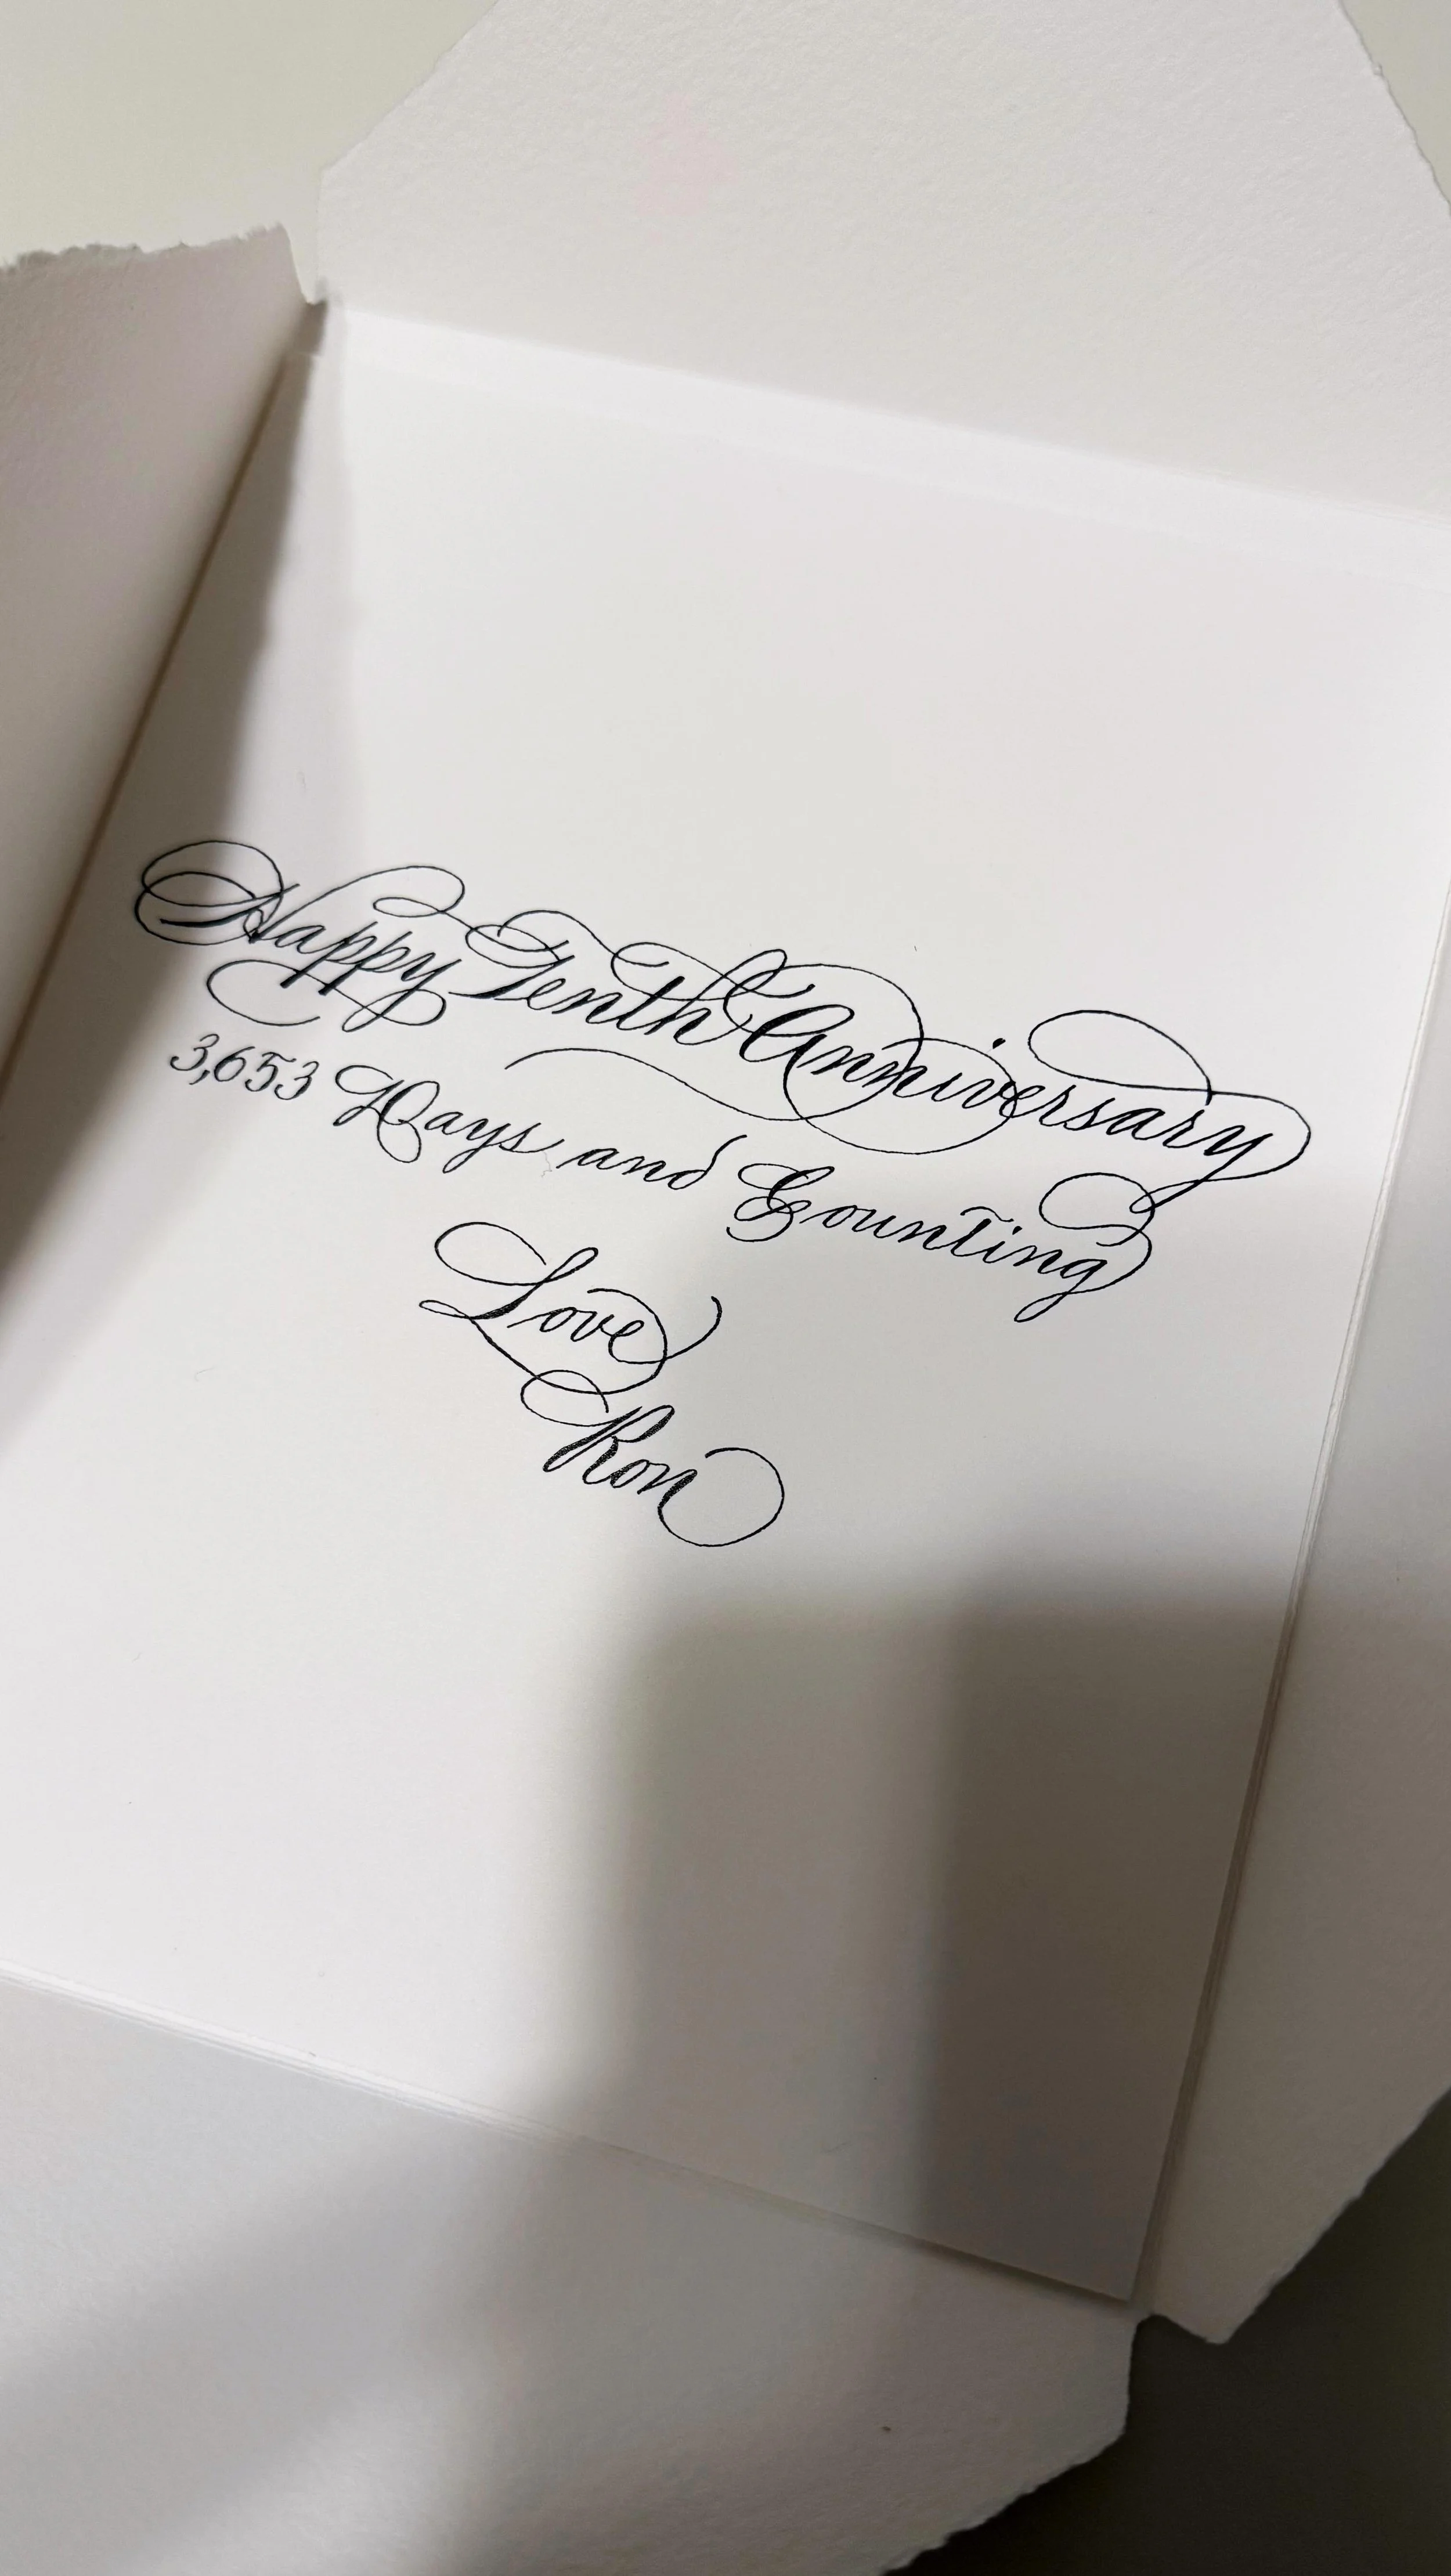 Happy Tenth Anniversary
3,653 Days and Counting
Love
Ron